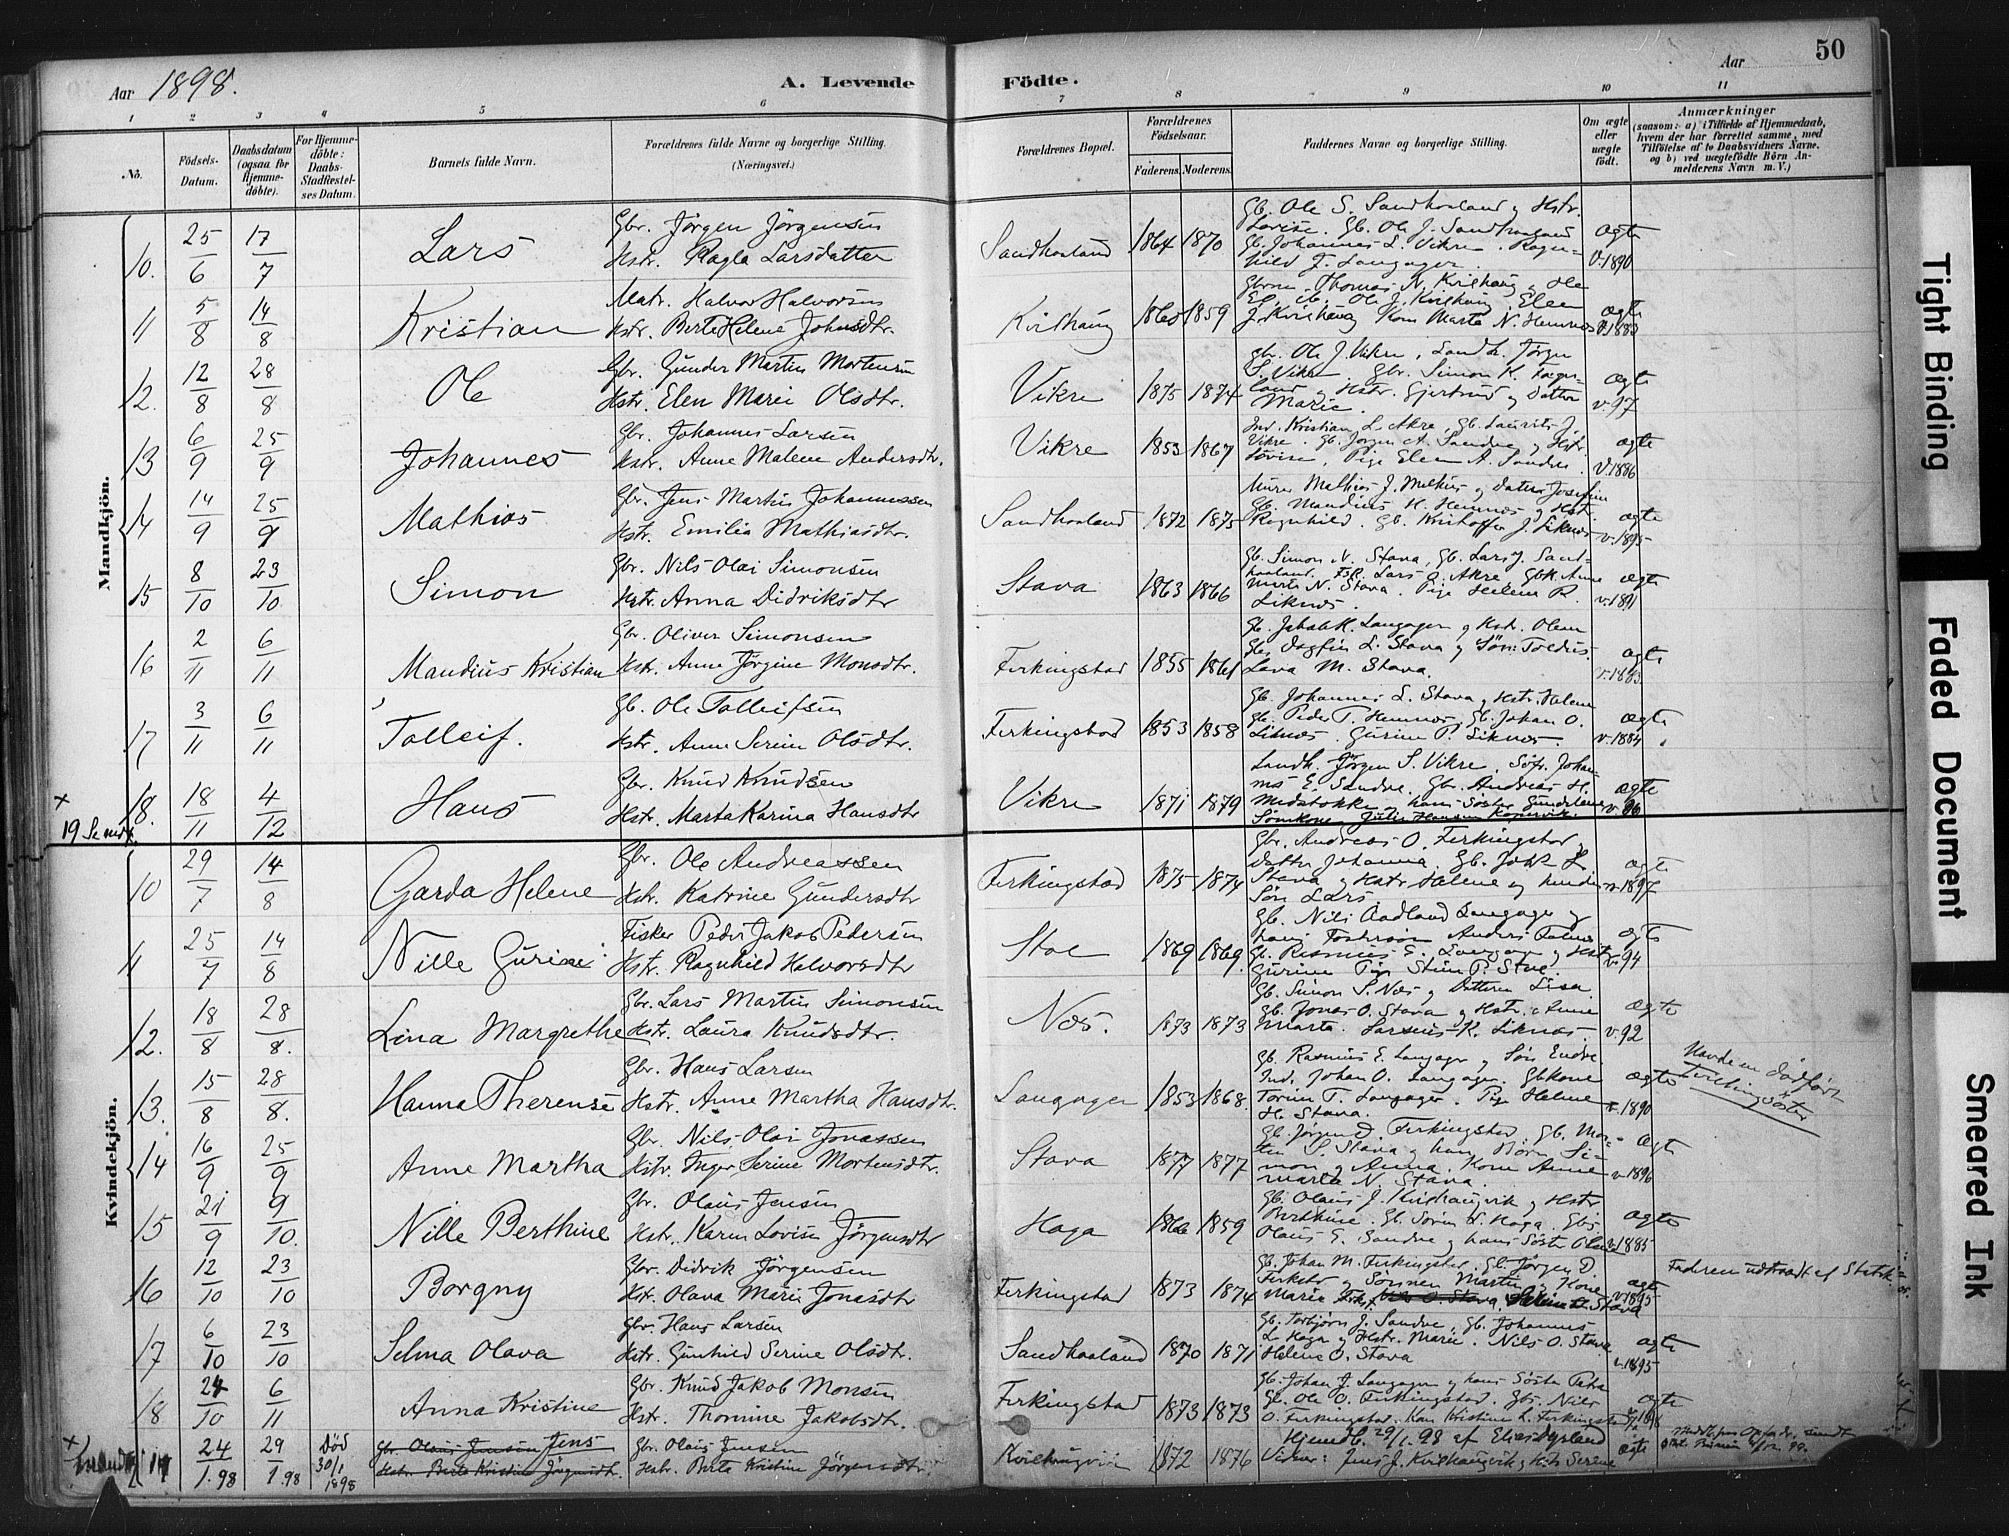 50
Aar 1898.
A. Levende Födte.
Aar
1 2 3 4 5 6 7 8 9 10 11
No.
Födsels-Datum.
Daabsdatum (ogsaa for Hjemme-döbte).
For Hjemme-döbte: Daabs-Stadfæstelses Datum.
Barnets fulde Navn.
Forældrenes fulde Navne og borgerlige Stilling. (Næringsvei.)
Forældrenes Bopæl.
Forældrenes Födselsaar.
Faderens. Moderens.
Faddernes Navne og borgerlige Stilling.
Om ægte eller uægte födt.
Anmærkninger (saasom: a) i Tilfælde af Hjemmedaab, hvem der har forrettet samme, med Tilföielse af to Daabsvidners Navne, og b) ved uægtefödte Börn Anmelderens Navn m. V.)
Mandkjön.
10. 25/6 17/7 Lars Gbr. Jörgen Jörgensen Hstr. Ragla Larsdatter Sandhaaland 1864 1870 Gb. Ole S. Sandhaaland og Hstr. Lovise. Gb. Ole J. Sandhaaland Gb. Johannes L. Vikre. Ragnhild J. Langager. ægte v. 1890
11 5/8 14/8 Kristian Matr. Halvor Halvorsen Hstr. Berte Helene Johnsdtr. Kvilhaug 1860 1859 Thomas N. Kvilhaug Ole J. Kvilhaug Elen J. Kvilhaug Kone Marta N. Hemnes ægte v. 1883
12. 12/8 28/8 Ole Gbr. Gunder Martin Mortensen Hstr. Elen Marie Olsdtr. Vikre 1875 1874 gbr. Ole J. Vikre, Landh. Jörgen S. Vikre. Gbr. Simon K. og Hstr. Gjertrud og Datter Marie. ægte v. 97
13 6/9 25/9 Johannes Gbr. Johannes Larsen Hstr. Anne Malene Andersdtr. Vikre 1853 1867 Ind. Kristian L. Akre, Gb. Laurits J. Vikre. Gb. Jörgen A. Sandve og Hstr. Lovise, Pige Elen A. Sandve. ægte v. 1886
14 14/9 25/9 Mathias Gbr. Jens Martin Johannessen Hstr. Emilia Mathiasdtr. Sandhaaland 1872 1875 Murer Mathias J. og Datter Josefine Gb. Mandius H. Hemnes og Hstr. Ragnhild. Gb. Kristoffer J. Liknes ægte v. 1895
15 8/10 23/10 Simon Gbr. Nils Olai Simonsen Hstr. Anna Didriksdtr Stava 1863 1866 Gb. Simon N. Stava, Gb. Lars J. Sandhaaland. Lars O. Akre, Gbk. Anne Marta N. Stava. Pige Helene R. Liknes. ægte v. 1891
16 2/11 6/11 Mandius Kristian Gbr. Oliver Simonsen Hstr. Anne Jörgine Monsdtr. Ferkingstad 1855 1861 Gb. Langager og Hstr. Olene Gb. Dagfin L. Stava og Sön Lava M. Stava. ægte v. 1883
17 3/11 6/11 Tolleif. Gb. Ole Tolleifsen Hstr. Anne Serine Olsdtr. Ferkingstad 1853 1858 Gb. Johannes L. Stava og Hstr. Helene Gb. Peder T. Hemnes. Gb. Johan O. Liknes. Gurine P. Liknes. ægte v. 1884
x 19 Se nedf. 18. 18/11 4/12 Hans Gbr. Knud Knudsen Hstr. Marta Karina Hansdtr Vikre 1871 1879 Landh. Jörgen S. Vikre, Johannes E. Sandve. Gbr. Andreas H. Medstokke og hans Söster ægte v. 96
Kvindekjön.
10 29/7 14/8 Garda Helene Gbr. Ole Andreassen Hstr. Katrine Gundersdtr Ferkingstad 1875 1874 Gbr. Andreas O. Ferkingstad og Datter Johanna. Gb. Stava og Hstr. Helene og hendes Sön Lars ægte v. 1897
11 25/7 14/8 Nille Gurine Fisker Peder Jakob Pedersen Hstr. Ragnhild Halvorsdtr Stol 1869 1869 Gb. Nils Aadland Langager og hans Anders Gb. Rasmus E. Langager og Hstr. Gurine ægte v. 94
12. 18/8 28/8. Lina Margrethe Gbr. Lars Martin Simonsen Hstr. Laura Knudsdtr. Næs. 1873 1873 Gb. Simon S. Næs og Datteren Lisa Gb. Jonas O. Stava og Hstr. Anne Marta. Larsine K. Liknes ægte v. 92
13. 15/8 28/8. Hanna Therense Gbr. Hans Larsen Hstr. Anne Martha Hansdtr. Langager 1853 1868. Gb. Rasmus E. Langager og Sön Endre Ind. Johan O. Langager. Gbkone Torine T. Langager. Pige Helene H. Stava. ægte v. 1890 Havde en dödfödt Tvillingsöster
14 16/9 25/9 Anne Martha Gbr. Nils Olai Jonassen Hstr. Inger Serine Mortensdtr. Stava 1877 1877 Gb. Jörgen D. Ferkingstad, Gb. Morten S. Stava og hans Börn Simon og Anna. Kone Anne Marta N. Stava. ægte v. 1896
15 21/9 9/10. Nille Berthine Gbr. Olaus Jensen Hstr. Karen Lovise Jörgensdtr Haga 1866 1859 Gb. Olaus J. Kvilhaugvik og Hstr Berthine. Gb. Sören H. Haga. Gbs. Olaus G. Sandve og hans Söster Oline ægte v. 1885
16 12/10 23/10 Borgny Gbr. Didrik Jörgensen Hstr. Olava Marie Jonasdtr Ferkingstad 1873 1874 Gb. Johan M. Ferkingstad. Gb. Jörgen D. Ferkstd og Sönnen Martin og Kone Marie Stava ægte v. 1895 Faderen udtraadt af Statsk
17 6/10 23/10 Selma Olava Gbr. Hans Larsen Hstr. Gunhild Serine Olsdtr. Sandhaaland 1870 1871 Gb. Torbjörn J. Sandve, Gb. Johannes L. Haga og Hstr. Marie. Nils O. Stava Helene O. Stava ægte v. 1895
18 24/10 6/11 Anna Kristine Gbr. Knud Jakob Monsen Hstr. Thomine Jakobsdtr. Ferkingstad 1873 1873 Gb. Johan J. Langager og hans Söster Gb. Ole O. Ferkingstad. Gbs. Nils O. Ferkingstad. Kone Kristine L. Ferkingstad ægte
24/1.98 29/1.98 Död 30/1 1898 Gbr. Olaus Jensen Jens Hstr. Berta Kristine Jörgensdtr. Gbr. Olaus Jensen Hstr. Berta Kristine Jörgensdtr Kvilhaugvik 1872 1876 Hjemdb. 29/1.98 af Vidner: Jens J. Kvilhaugvik og Hstr Serene ægte
Tight Binding
Faded Document
Smeared Ink